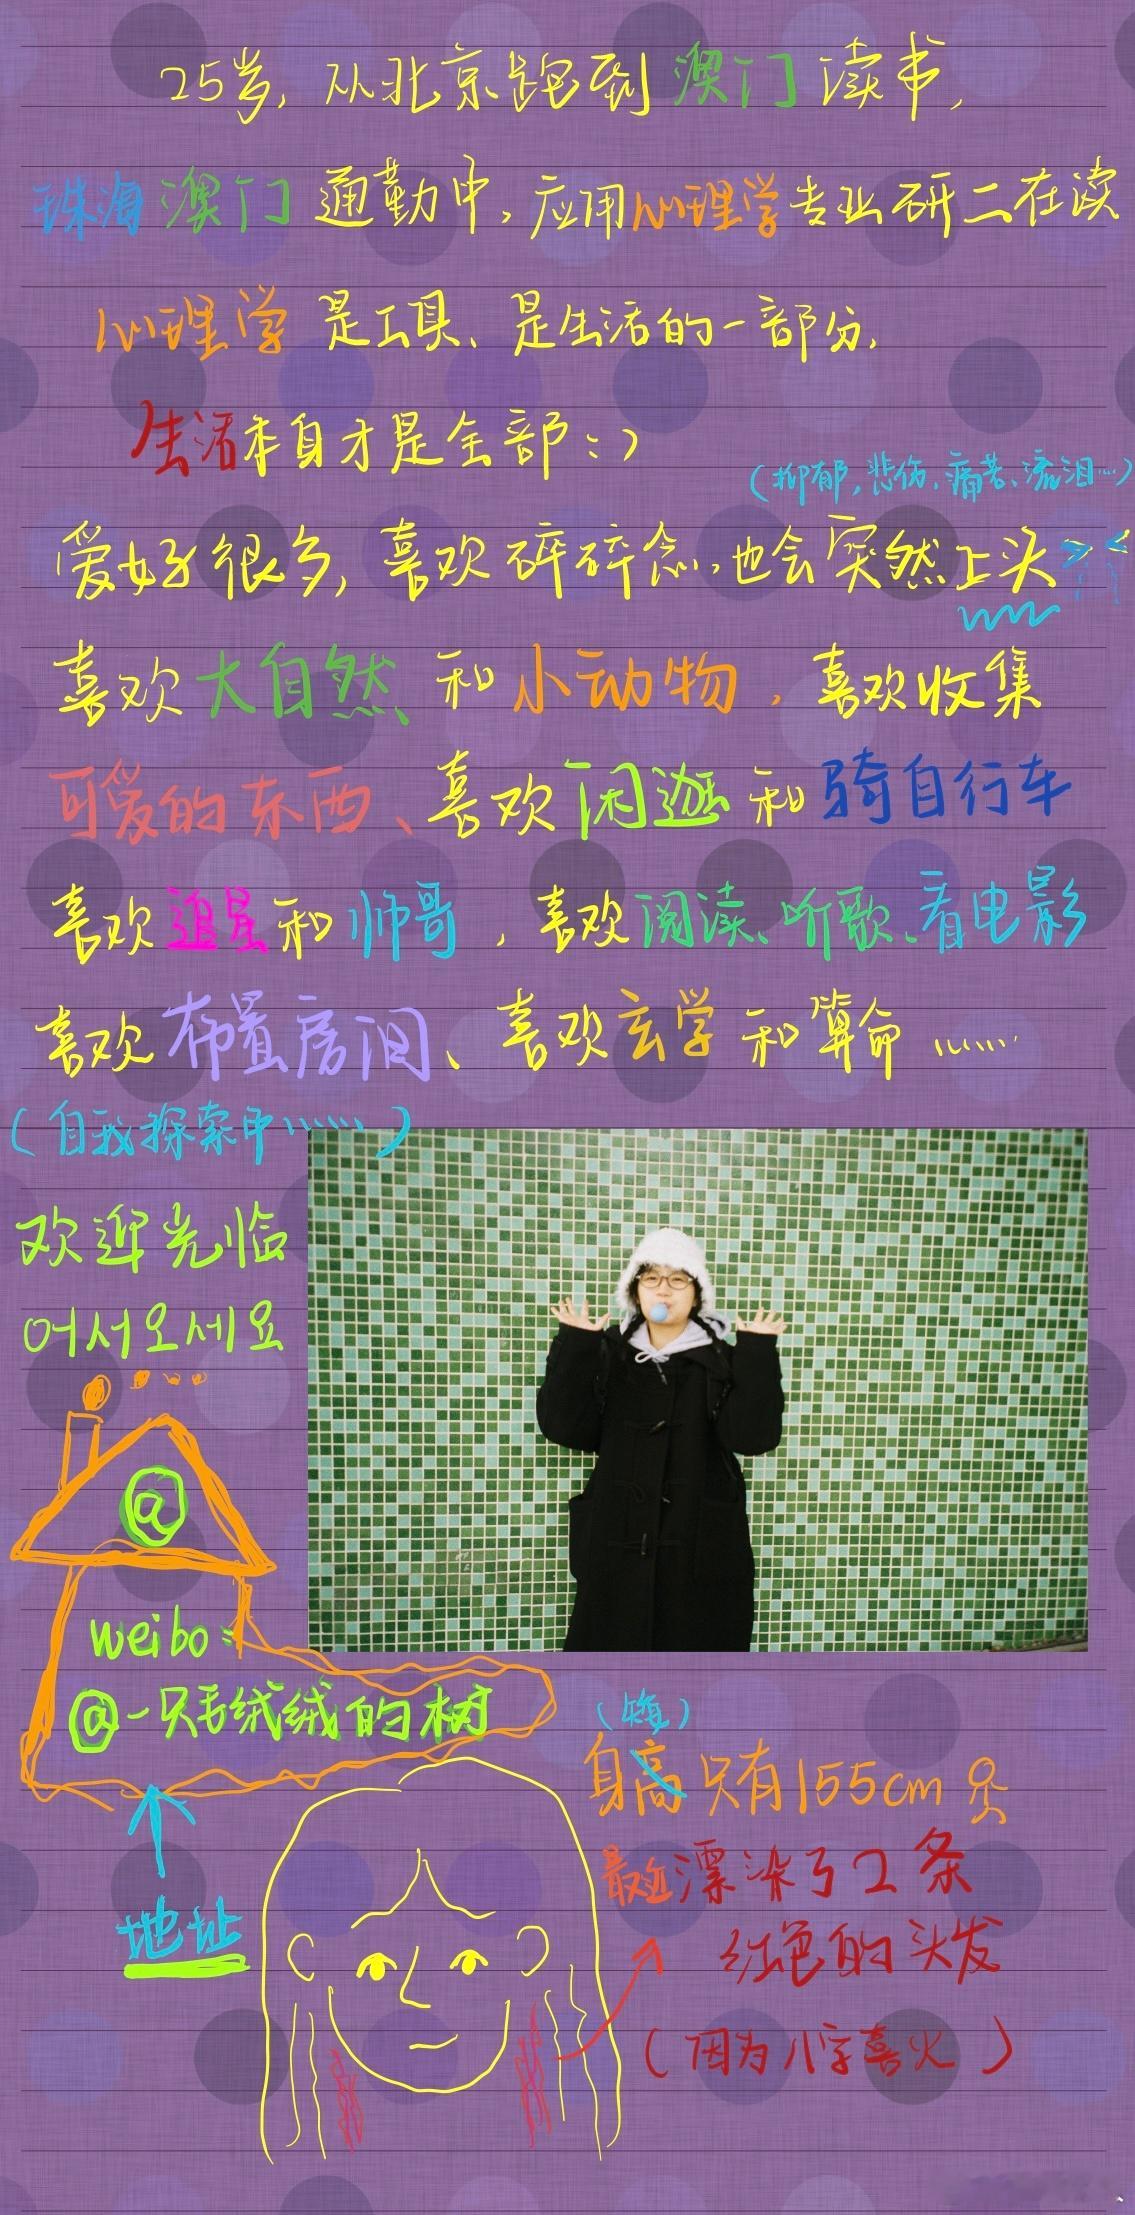 25岁，从北京跑到澳门读书，
珠海澳门通勤中，应用心理学专业研二在读
心理学是工具、是生活的一部分，
生活本身才是全部：）
（抑郁，悲伤、痛苦、流泪…）
爱好很多，喜欢碎碎念，也会突然上头
喜欢大自然和小动物，喜欢收集
可爱的东西、喜欢闲逛和骑自行车
喜欢追星和帅哥，喜欢阅读、听歌、看电影
喜欢布置房间、喜欢玄学和算命……
（自我探索中……）
欢迎光临
어서오세요
@
weibo：
@一只毛绒绒的树
地址
（矮）
身高只有155cm
最近漂染了2条
红色的头发
（因为八字喜火）